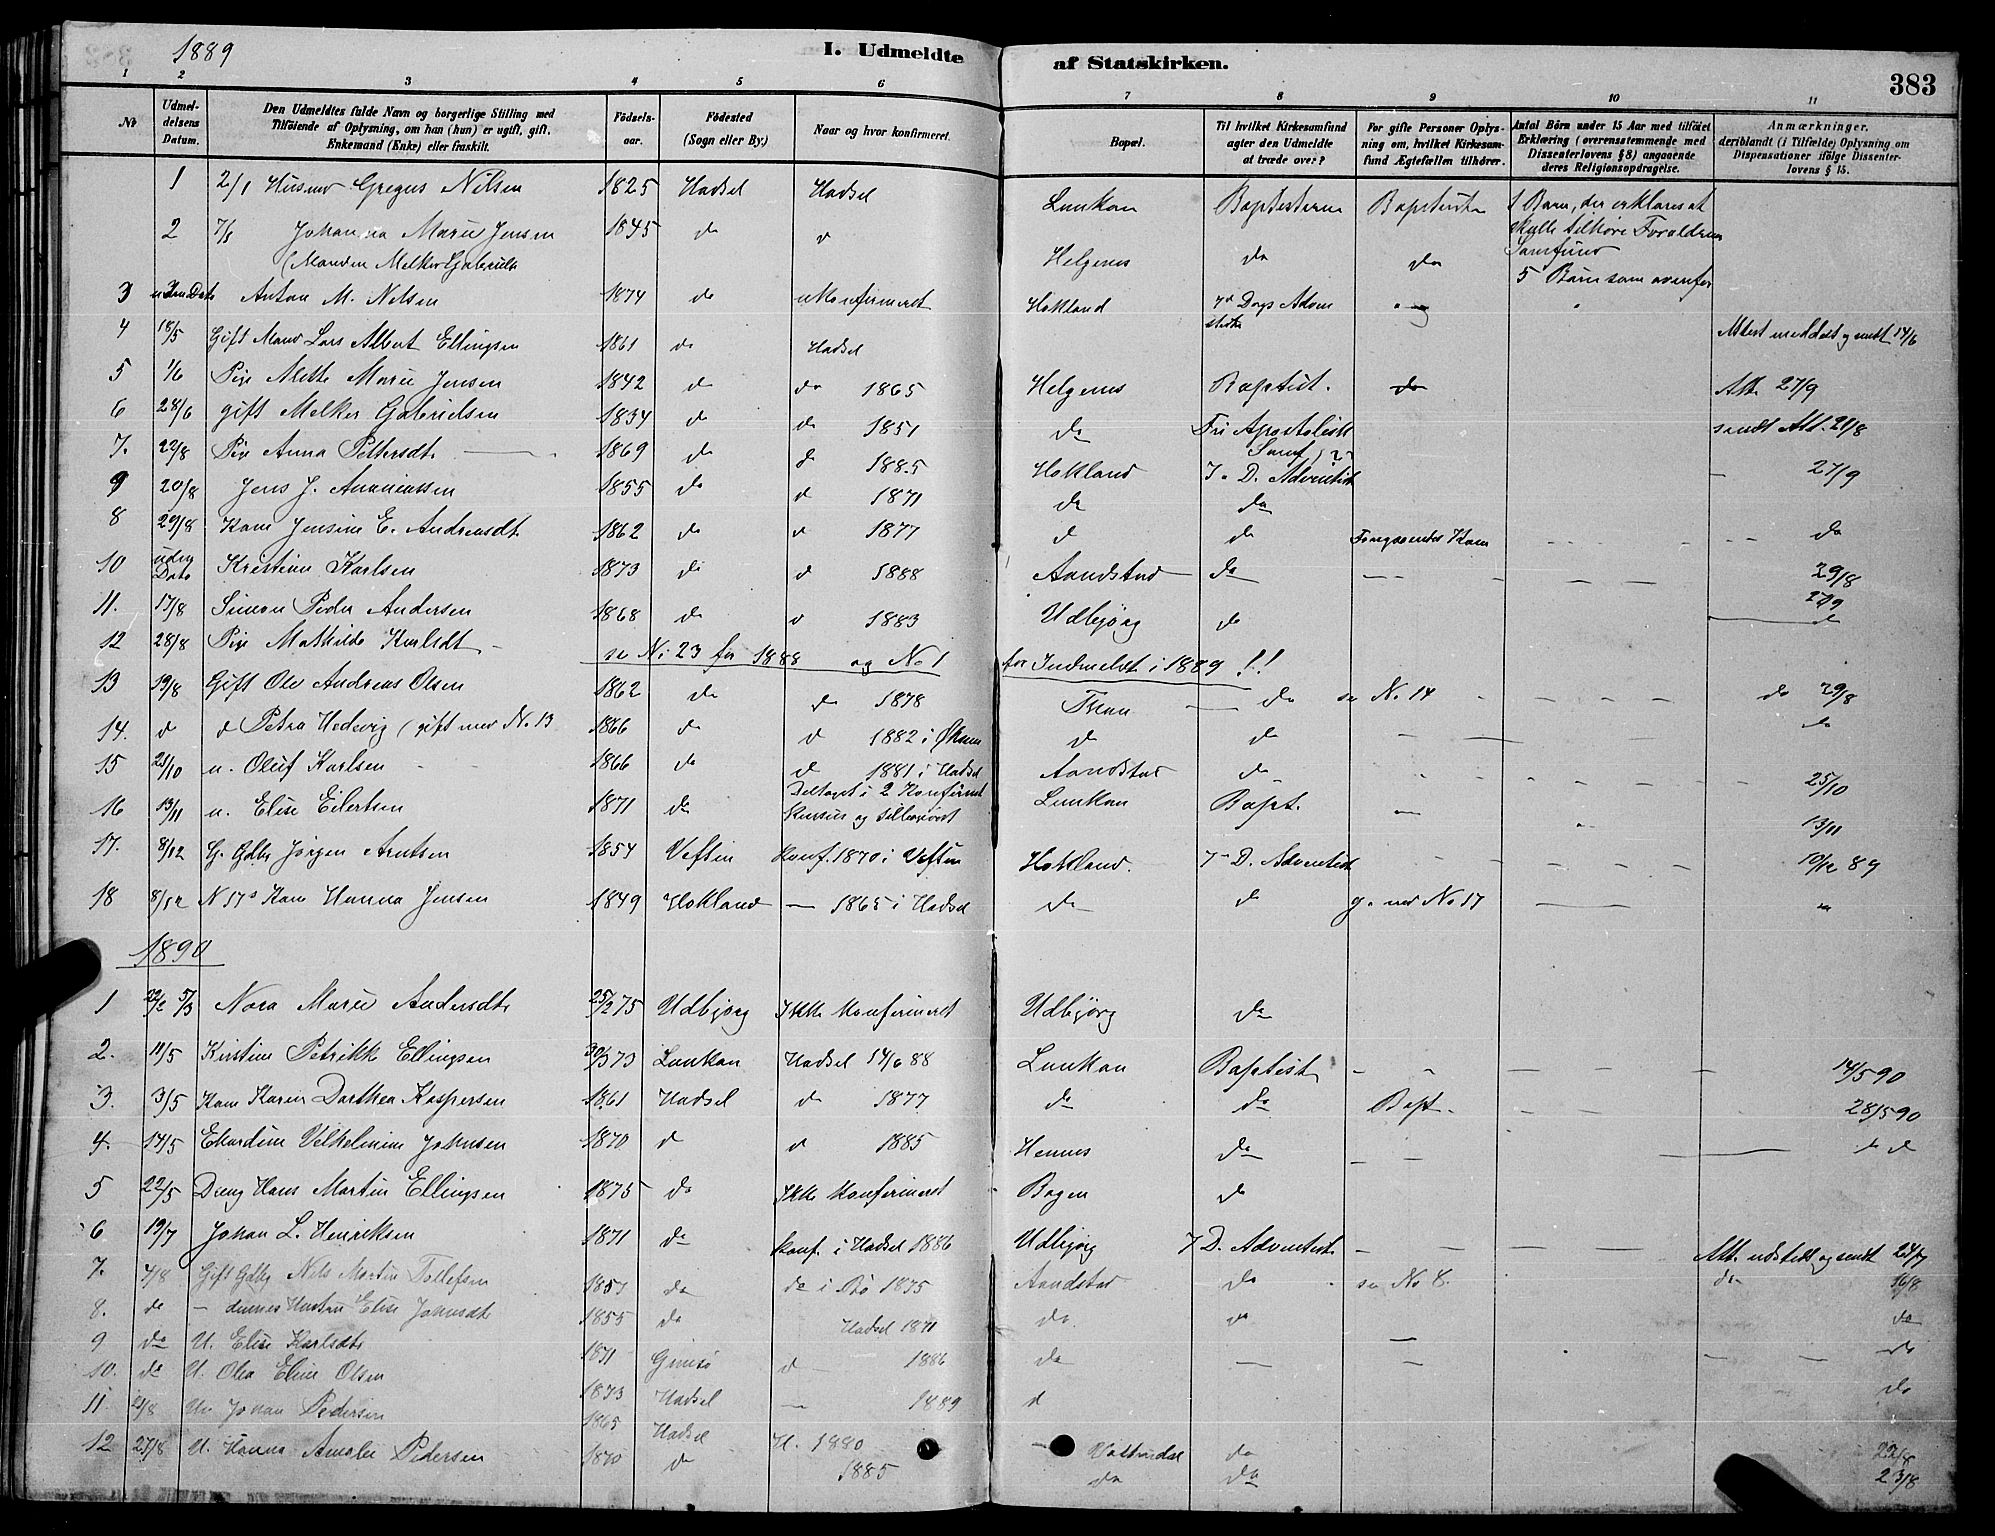 1889
I. Udmeldte af Statskirken.
383
1 2 3 4 5 6 7 8 9 10 11
No
Udmeldelsens Datum.
Den Udmeldtes fulde Navn og borgerlige Stilling med Tilføiende af Oplysning, om han (hun) er ugift, gift, Enkemand (Enke) eller fraskilt.
Fødselsaar.
Fødested (Sogn eller By.)
Naar og hvor konfirmeret.
Bopæl.
Til hvilket Kirkesamfund agter den Udmeldte at træde over?
For gifte Personer Oplysning om, hvilket Kirkesamfund Ægtefællen tilhører.
Antal Børn under 15 Aar med tilføiet Erklæring (overensstemmende med Dissenterlovens § 8) angaaende deres Religionsopdragelse.
Anmærkninger, deriblandt (i Tilfælde) Oplysning om Dispensationer ifølge Dissenterlovens § 15.
1 2/1 Husmd Gregus Nilsen 1825 Hadsel Hadsel Lunkan Baptisterne Baptist 1 Barn, der erklæres at skulle tilhøre Forældrenes Samfund
2 7/5 Johanna Marie Jensen 1845 do d Helgenes do do 5 Børn som ovenfor
(Manden Melker Gabriels
3 uden Dato Anton M. Nilsen 1874 do ukonfirmeret Hokland 7d Dags Adventister
4 18/5 Gift Mand Lars Albert Ellingsen 1861 do Hadsel Attest meddelt og sendt 14/6
5 1/6 Pige Mette Marie Jensen 1842 do do 1865 Helgenes Baptist. do Att. 27/9
6 28/6 gift Melker Gabrielsen 1834 do do 1851 do Fri Apostolisk Samf. sendt Att. 20/8
7. 22/8 Pige Anna Pettersdt 1869 do do 1885 Hokland 7. D. Adventist 27/9
9 20/8 Jens J. Ananiassen 1855 do d 1871 do do
8 29/8 Kone Jensine E. Andreasdt 1862 do d 1877 d do Foregaaendes Kone do
10 uden Dato Kristine Karlsen 1873 do d 1888 Aandstad do 29/8
11. 17/8 Simon Peder Andersen 1868 do d 1883 Udbjørg do 27/9
12 28/8 Pige Mathilde Karlsdt se No 23 for 1888 og No 1 for Indmeldt i 1889!! do
13 19/8 Gift Ole Andreas Olsen 1862 do do 1878 do se No 14 do 29/8
14. d d Petra Hedevig (gift med No. 13 1866 do d 1882 i Øksnes d do do
15 21/10 u. Oluf Karlsen 1866 do d 1881 i Hadsel Aandstad do 25/10
16 13/11 u. Elise Eilertsen 1871 do Deltaget i 2 Konfirmt Kursus og tilbagevist Lunkan Bapt. 13/11
17. 8/12 G. Gdbr Jørgen Arntsen 1854 Vefsen konf. 1870 i Vefsen Hokland. 7. D. Adventist 10/12 89
18 8/12 N 17s Kone Hanna Jensen 1849 Hokland — 1865 i Hadsel do do g. med No 17
1890
1 22/2 5/3 Nora Marie Andersdt 25/2 75 Udbjørg Ikke konfirmeret Udbjørg do
2. 11/5 Kirstine Petrikke Ellingsen 30/3 73 Lunkan Hadsel 17/6 88 Lunkan Baptist 14/5 90
3. 3/5 Kone Karen Dorthea Kaspersen 1861 Hadsel d 1877 do do Bapt. 28/5 90
4. 14/5 Ekardine Vilhelmine Johnsen 1870 d d 1885 Hennes do do
5 22/5 Dreng Hans Martin Ellingsen 1875 do Ikke konfirmeret Bogen do
6 19/7 Johan L. Henriksen 1871 do konf. i Hadsel 1886 Udbjørg 7 D. Adventist Att. udstedt og sendt 24/7
7. 4/8 Gift Gdbr Nils Martin Tollefsen 1857 do do i Bø 1875 Aandstad do se No 8. do 16/8
8. do — dennes Hustru Elise Johnsdt 1855 do Hadsel 1871 do. do do
9 do U. Elise Karlsdt 1871 Gimsø d 1886 do — — do
10. do U. Olea Eline Olsen 1873 Hadsel — 1889 d do
11 21/8 Um Johan Pedersen 1865 Hadsel H. 1880 do 22/8
12 27/8 U. Hanna Amalie Pedersen 1870 d 1885 do do 23/8